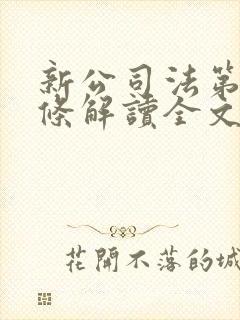 新公司法第
條解讀全文
花開不落的城